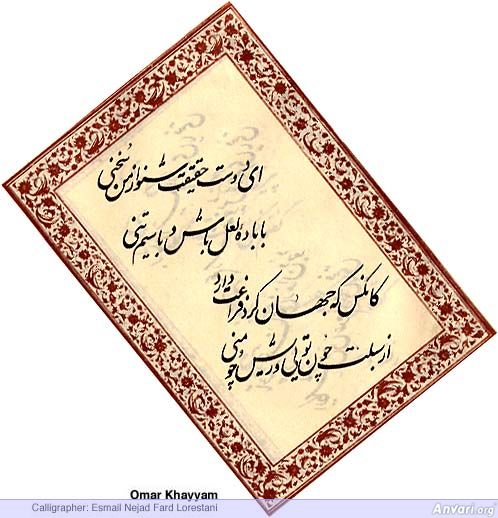 ای دوست حقیقت شنواز من سخنی
با باده لعل باش و با سیم تنی
کانکس که جهان کرد فراغت دارد
از سبلت چون تویی و ریش چو منی
Omar Khayyam
Calligrapher: Esmail Nejad Fard Lorestani
Anvari.org